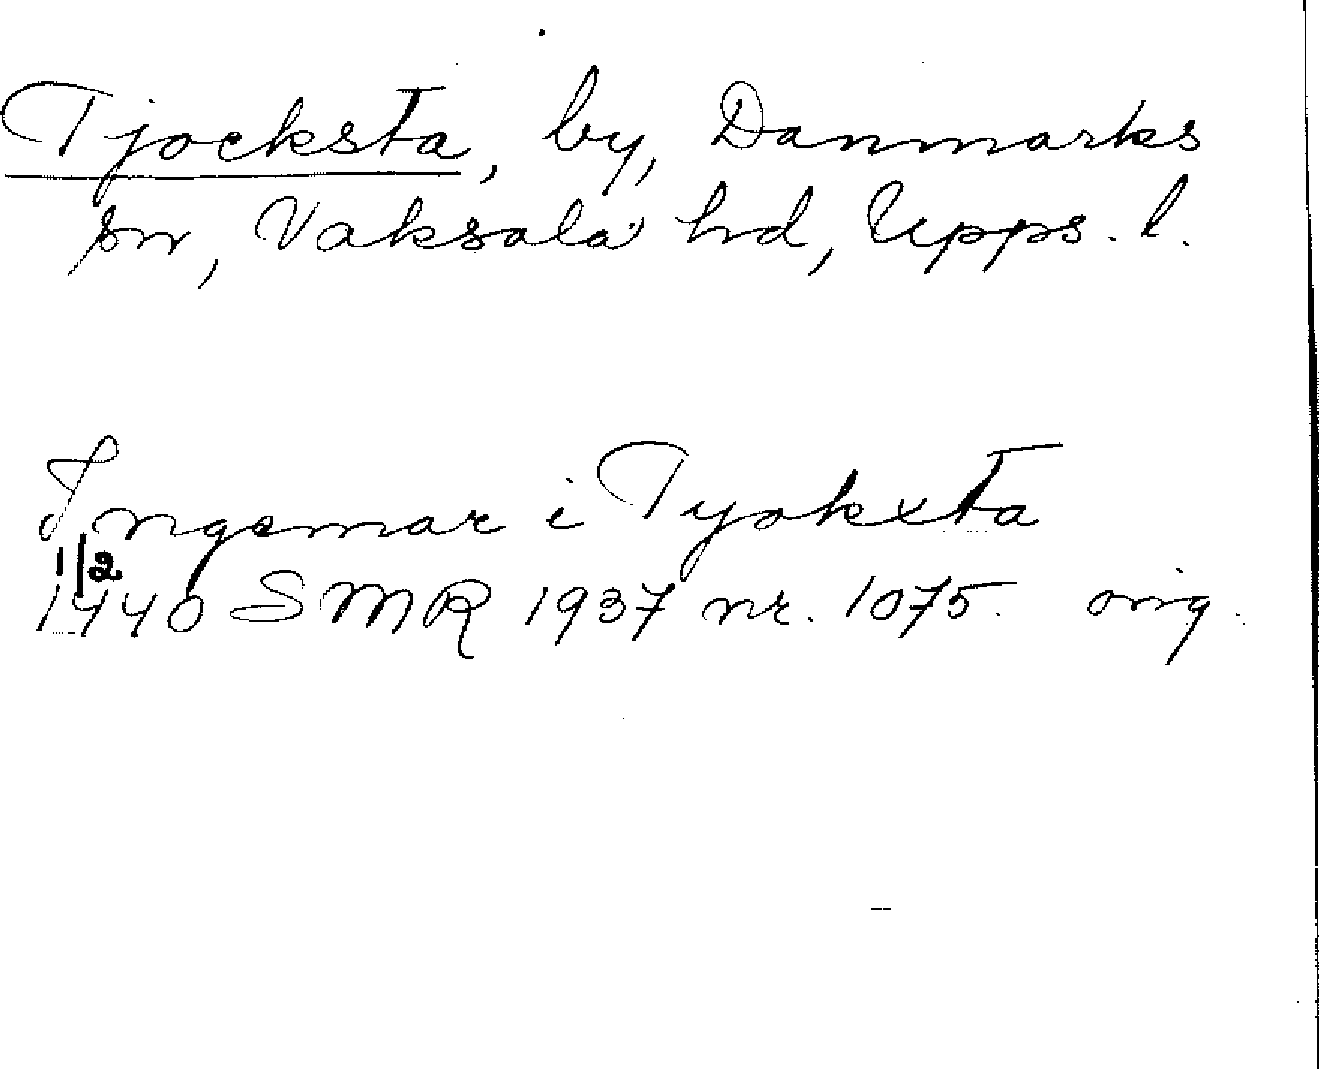 Tjocksta, by, Danmarks
sn, Vaksala hd, Upps. l.
Ingemar i Tyokxta
1/2
1440 SMR 1937 nr. 1075. orig.